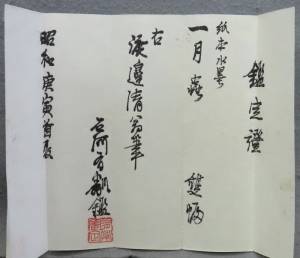 鑑定證
紙本水墨
一月森 雙幅
右
渡邊清翁筆
鑑
昭和庚寅首夏